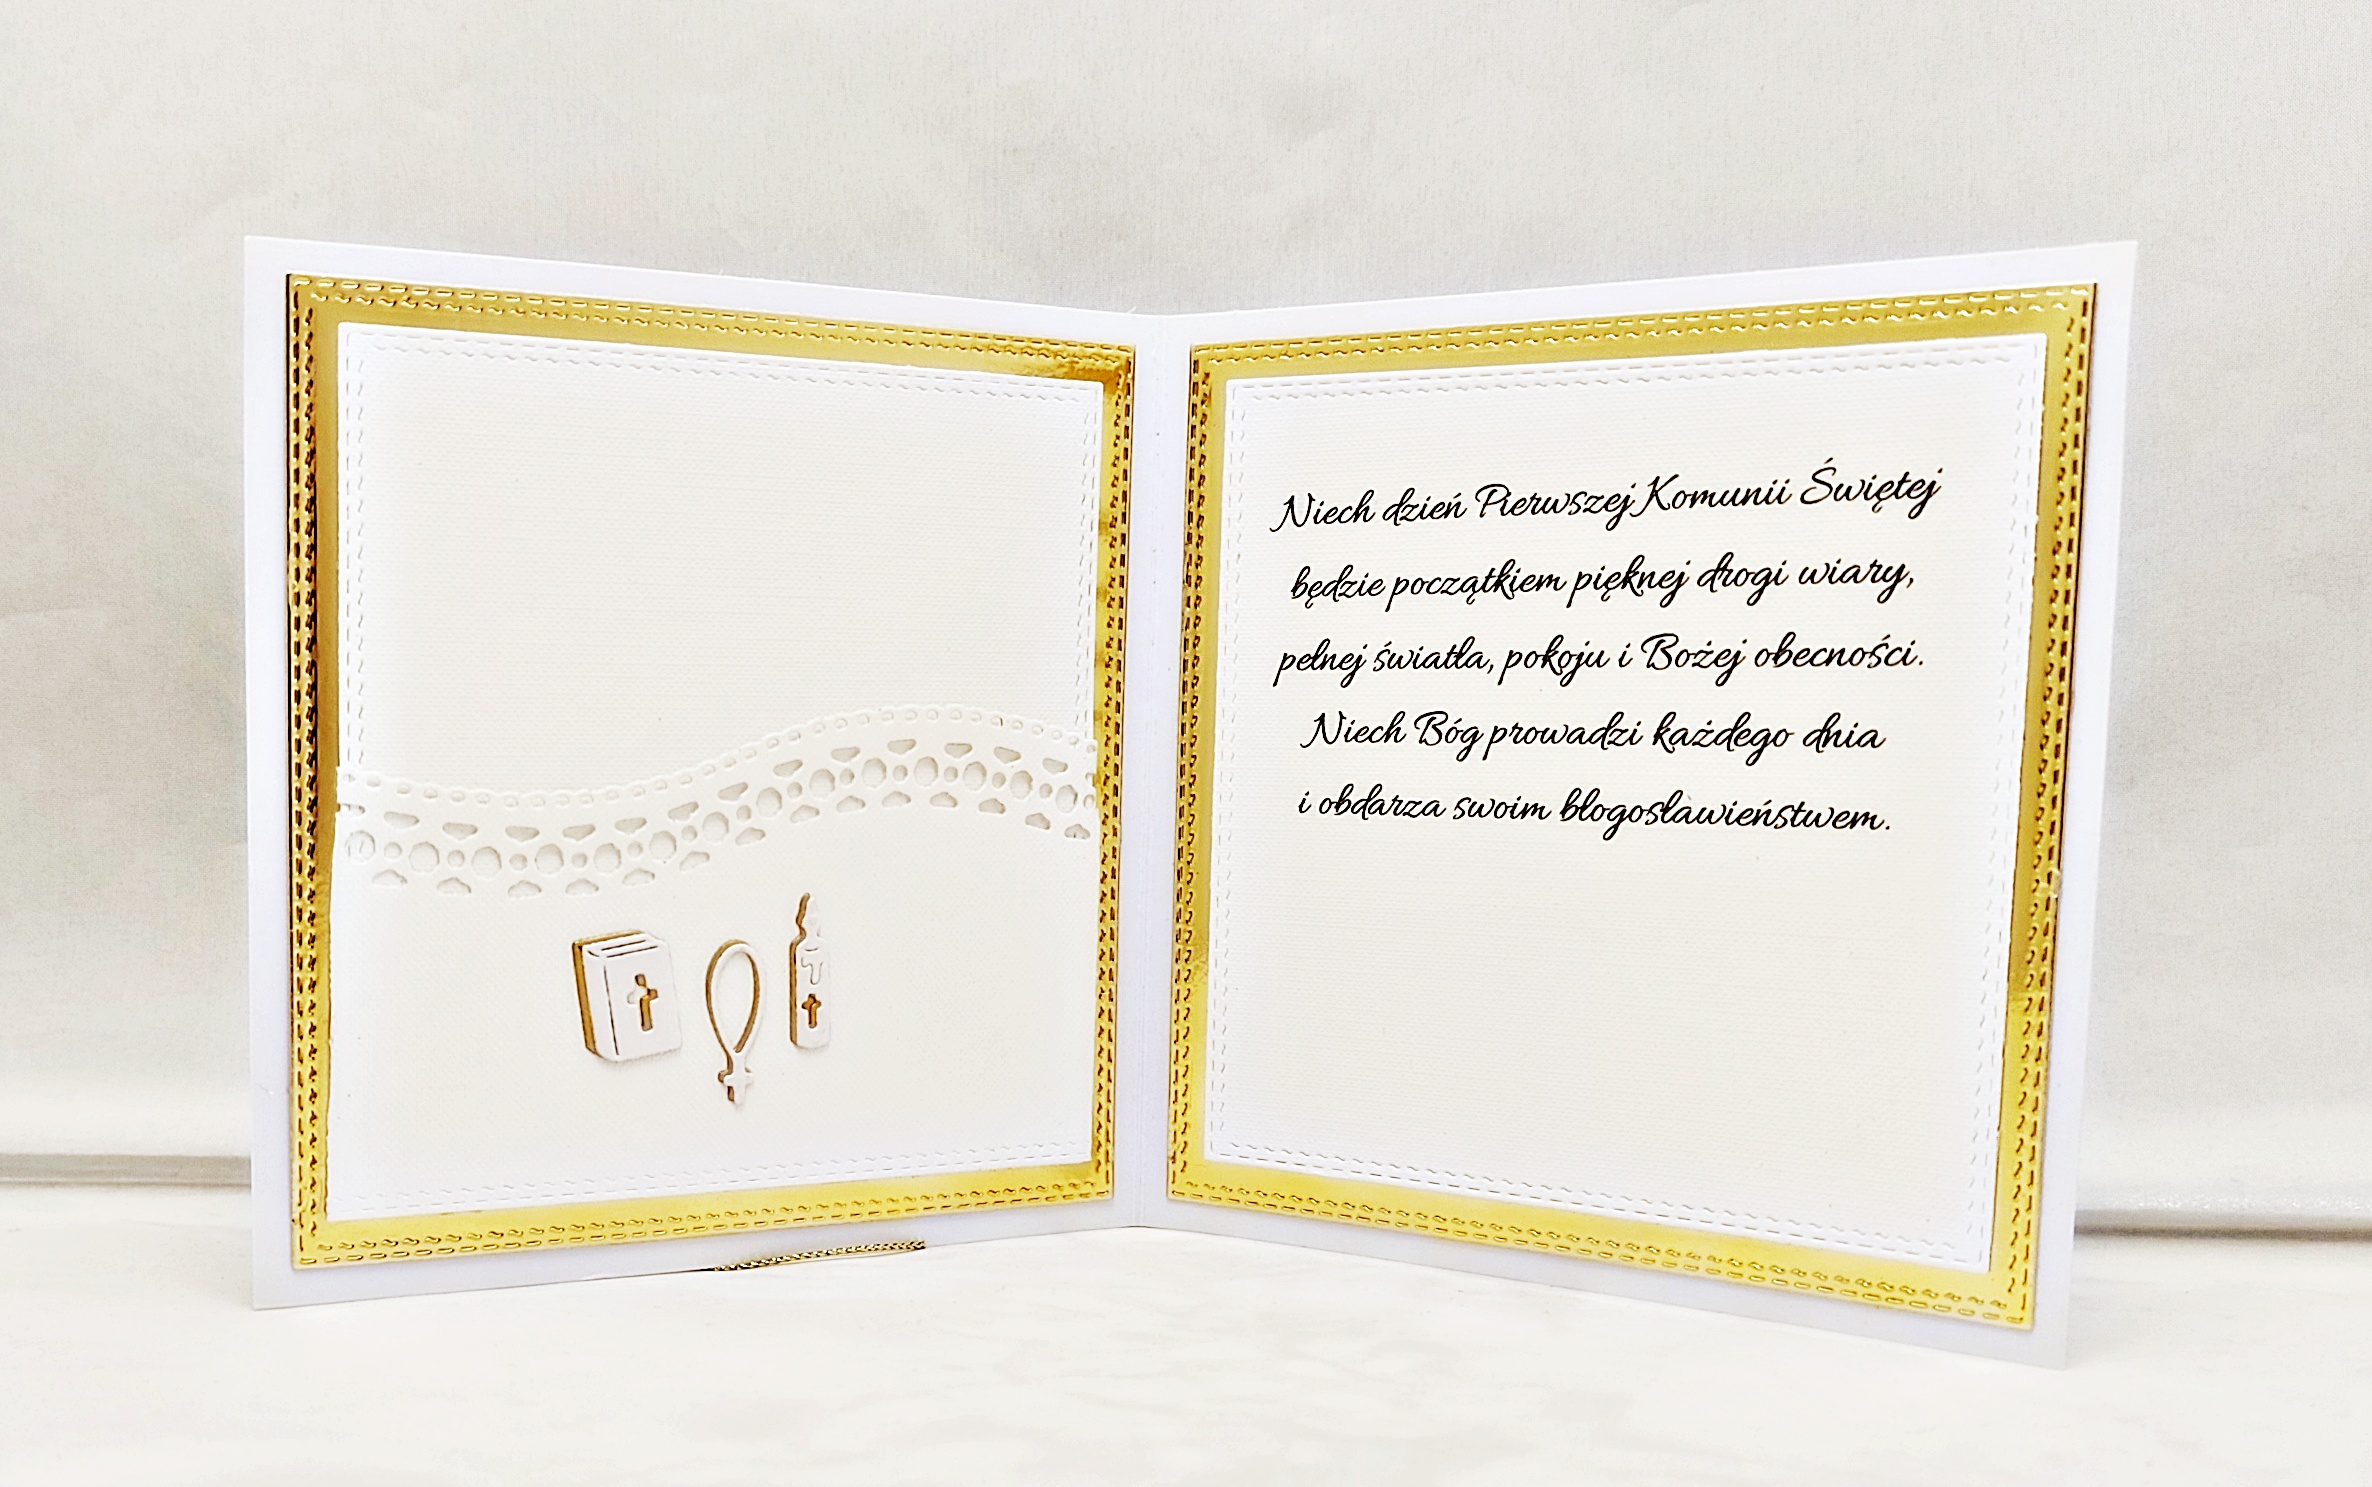 Niech dzień Pierwszej Komunii Świętej
będzie początkiem pięknej drogi wiary,
pełnej światła, pokoju i Bożej obecności.
Niech Bóg prowadzi każdego dnia
i obdarza swoim błogosławieństwem.